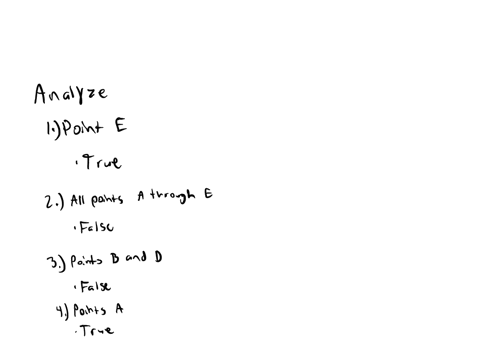 Analyze
1.) Point E
· True
2.) All points A through E
· False
3.) Points B and D
· False
4.) Points A
· True